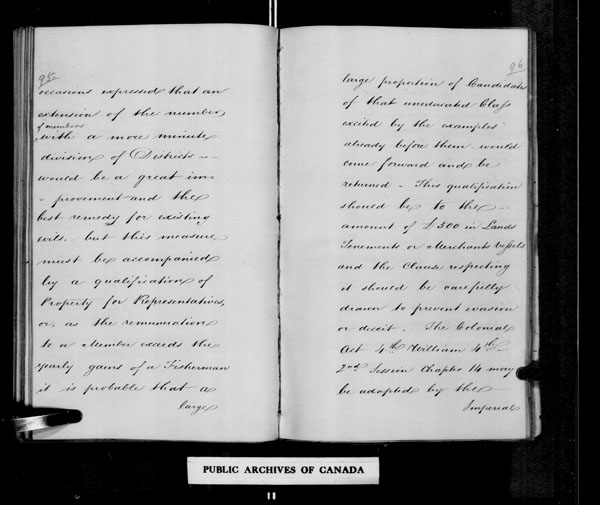 95
occasions expressed that an
extension of the number
of members
with a more minute
division of Districts -
would be a great im=
= provement and the
best remedy for existing
evils - but this measure
must be accompanied
by a qualification of
Property for Representatives,
or, as the remuneration
to a Member exceeds the
yearly gains of a Fisherman
it is probable that a
large
96
large proportion of Candidates
of that uneducated Class
excited by the examples
already before them would
come forward and be
returned - This qualification
should be to the -
amount of £500 in Lands
Tenements or Merchants Vessels
and the Clause respecting
it should be carefully
drawn to prevent evasion
or deceit - The Colonial
Act 4th William 4th -
2nd Session Chapter 14 may
be adopted by the -
Imperial
PUBLIC ARCHIVES OF CANADA